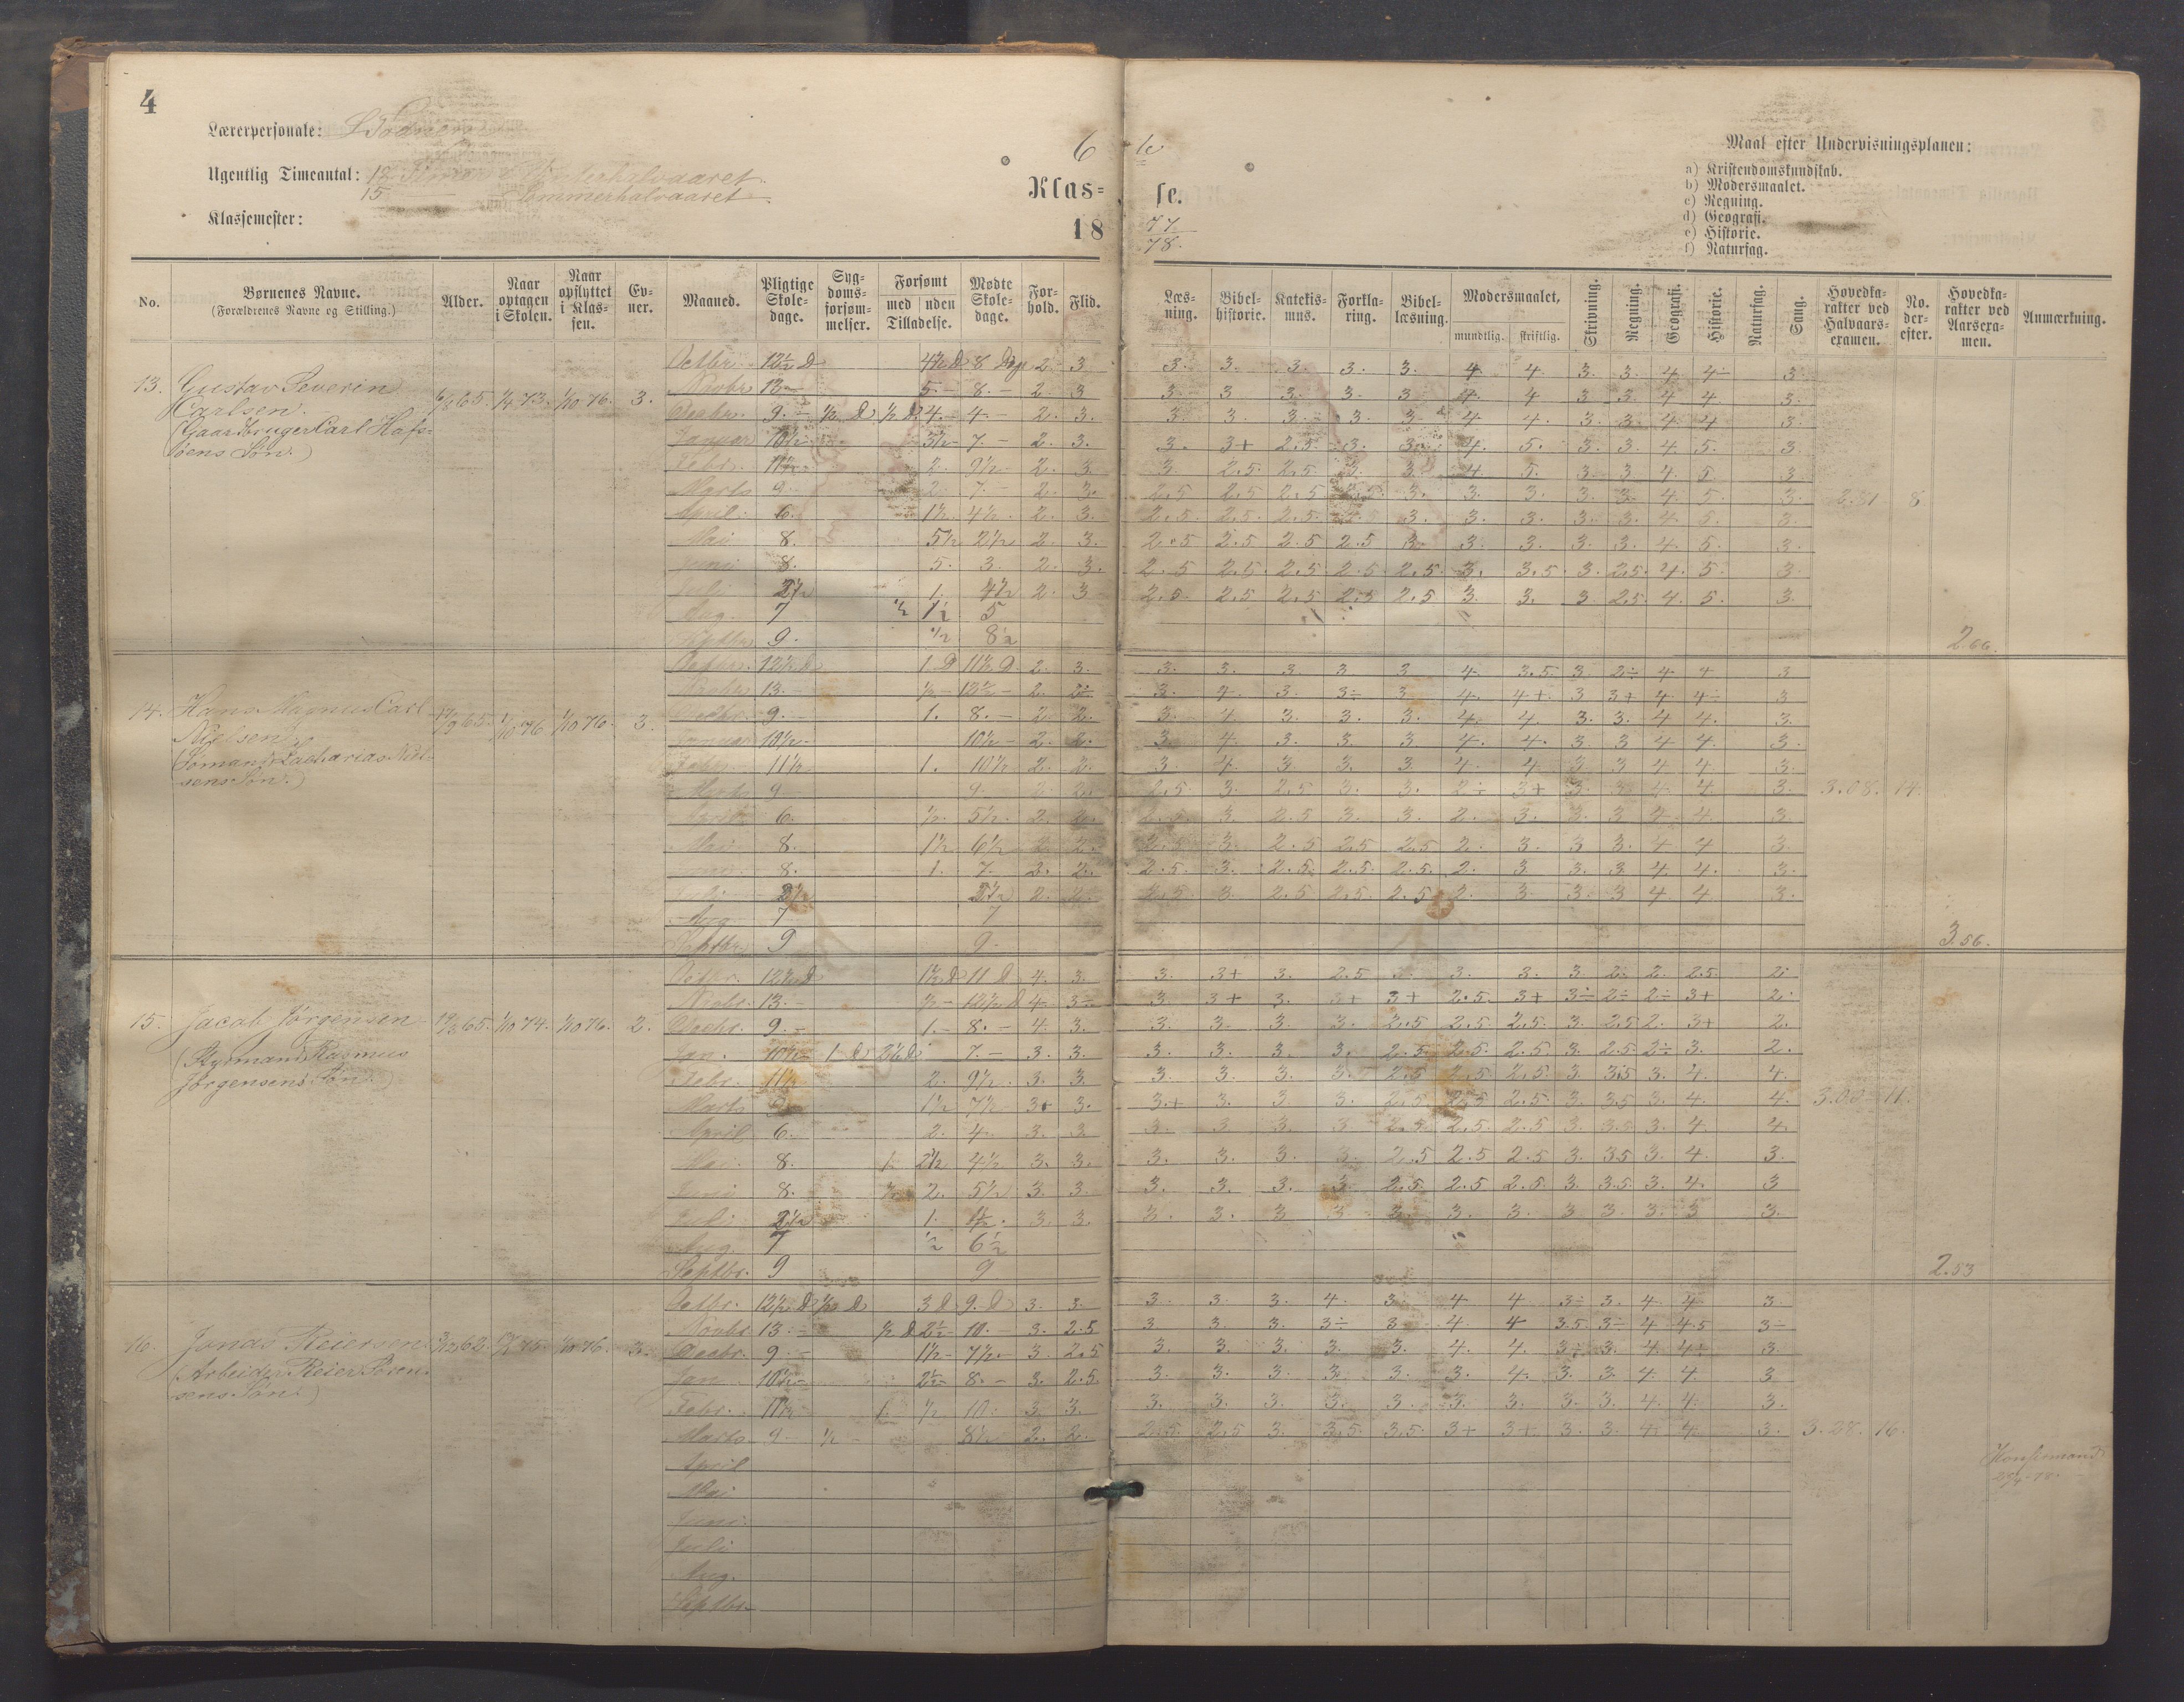 4
Lærerpersonale:
6 te
Maal efter Undervisningsplanen:
Ugentlig Timeantal: 18 Timer Vinterhalvaaret.
15 — Sommerhalvaaret.
Klas= se.
a) Kristendomskundskab.
b) Modersmaalet.
c) Regning.
d) Geografi.
e) Historie.
f) Naturfag.
Klassemester:
18 77/78.
No. Børnenes Navne. (Forældrenes Navne og Stilling.) Alder. Naar optagen i Skolen. Naar opflyttet i Klassen. Evner. Maaned. Pligtige Skoledage. Sygdomsforsømmelser. Forsømt med uden Tilladelse. Mødte Skoledage. Forhold. Flid. Læsning. Bibelhistorie. Katekismus. Forklaring. Bibellæsning. Modersmaalet, mundtlig. skriftlig. Skrivning. Regning. Geografi. Historie. Naturfag. Sang. Hovedkarakter ved Halvaarsexamen. No. derefter. Hovedkarakter ved Aarsexamen. Anmærkning.
13. Gustav Severin Carlsen.
(Gaardbruger Carl Hafsøens Søn.)
3.
Octbr. 12½ D 4½ D 8 2. 3 3. 3. 3. 3. 3. 4 4. 3. 3. 4 4÷ 3.
Novbr 13 — 5. — 8. — 2. 3 3 3 3. 3. 3 4. 4 3 3 4 4. 3.
Decbr. 9. — ½ D ½ D 4. — 4. — 2. 3. 3. 3 3. 3. 3 4 4. 3. 3 4 4 3.
Januar 10½ — 3½ — 7. — 2. 3. 3. 3+ 2.5 3. 3. 4. 5. 3. 3. 4 5. 3.
Febr. 11½ 2. 9½ 2. 3. 3. 2.5. 2.5 3. 3. 4 5. 3. 3 4. 5 3.
Marts 9 2 7. — 2. 3. 2.5 2.5 2.5 2.5. 3. 3. 3. 3. 3. 4 5. 3. 8
April. 6. 1½ 4½ 2. 3. 2.5 2.5. 2.5. 3. 3. 3. 3. 3. 4 5. 3.
Mai 8. 5½ 2½ 2. 3. 2.5 2.5 2.5 2.5 3. 3. 3. 3. 3. 4. 5. 3.
Juni 8. 5. 3. 2. 3. 2.5 2.5. 2.5. 2.5 2.5. 3. 3.5. 3. 2.5. 4. 5. 3.
Juli 2½ 1. 2. 3 2.5. 2.5 2.5 2.5 2.5 3. 3. 3. 2.5. 4. 5. 3.
Aug. 7 ½ 1½ 5
Septbr 9. ½ 8½ 2.66.
14. Hans Magnus Carl Nielsen.
(Sømand Zacharias Nielsens Søn.)
3.
Octbr. 12½ D 1 D 11½ D 2. 3. 3. 3. 3. 3 3 4. 3.5 3 2÷ 4 4 3
Novbr. 13. — ½ — 12½ — 2. 2÷ 3. 4. 3. 3÷ 3 4. 4+ 3 3+ 4 4÷ 3
Decbr. 9. — 1. 8. — 2. 2. 3. 4 3. 3. 3. 4. 4. 3. 3. 4 4. 3.
Januar 10½ — 10½ — 2. 2. 3. 4. 3. 3. 3. 4. 4. 3 3 4 4. 3.
Febr. 11½ 1. 10½ 2. 2. 3 4. 3 3. 3. 4. 4 3 3 4 4. 3.
Marts 9 9. 2. 2. 2.5 3. 2.5 3. 3. 2÷ 3+ 3. 3 4. 4. 3. 3.08. 14.
April 6. ½. 5½ 2. 2. 2.5 3. 2.5 3. 3. 2. 3. 3. 3 4 4. 3.
Mai 8. 1½ 6½ 2. 2. 2.5 3. 2.5 2.5 2.5 2. 3 3 3. 4 4 3.
Juni 8. 1. 7. 2. 2. 2.5. 3. 2.5. 2.5. 2.5. 2. 3 3. 3 4 4. 3.
Juli 2½ 2½ 2. 2. 2.5 3. 2.5 2.5. 2.5 2. 3 3. 3 4 4 3.
Aug. 7 7
Septbr. 9 9. 3.56.
15. Jacob Jørgensen
(Styrmand Rasmus Jørgensens Søn.)
2.
Octbr. 12½ D 1½ D 11 D 4. 3. 3. 3+ 3. 2.5 3. 3. 3 2÷ 2. 2.5 2.
Novbr. 13. — ½ — 12½ D 4. 3÷ 3. 3+ 3. 3+ 3+ 2.5. 3+ 3÷ 2÷ 2÷ 3+ 2.
Decbr. 9. — 1. — 8. — 4. 3. 3. 3. 3. 3. 2.5 2.5. 2.5. 3. 2.5 2. 3+ 2.
Jan. 10½ — 1 D 2½ D 7. — 3. 3. 3. 3. 3. 3. 2.5. 2.5. 2.5. 3. 2.5. 2÷ 3. 2.
Febr. 11½ 2. 9½. 3. 3. 3. 3. 3. 3. 2.5 2.5 2.5. 3. 3.5 3. 4. 4.
Marts 9. 1½ 7½ 3+ 3. 3.+ 3. 3. 3. 2.5 2.5 2.5. 3. 3.5 3. 4. 4. 11.
April 6. 2. 4. 3. 3. 3. 3 3. 3 2.5. 2.5. 2.5 3. 3.5 3. 4 4.
Mai. 8. 1. 2½ 4½ 3. 3. 3. 3. 3. 3. 2.5 2.5 2.5 3. 3.5 3. 4. 3.
Juni 8. ½ 2. 5½ 3. 3. 3. 3. 3. 3. 2.5. 2.5 2.5 3. 3.5. 3. 4. 3
Juli 2½ 1. 1½. 3. 3. 3. 3. 3 3 3. 3. 3. 3. 3. 3. 3 3.
Aug. 7 ½ 6½
Septbr. 9 9 2.53
16. Jonas Reiersen
(Arbeider Reier Sørensens Søn.)
3.
Octbr. 12½ D D 3 D 9. D 3. 3. 3 3. 3. 4. 3. 4 4 3÷ 3. 4. 4. 3.
Novbr. 13. — ½ D 2½ — 10. — 3. 2.5 3 3. 3. 3÷ 3. 4. 4 3.5 3÷ 4 4.5 3÷
Decbr. 9. — 1½ — 7½ — 3 2.5 3. 3. 3. 3. 3. 4. 4. 3÷ 3. 4 4÷ 3.
Jan 10½ — 2½ — 8. — 3. 2.5. 3. 3. 3. 3. 3. 3. 4. 3. 3. 4 4 3
Febr. 11½ 1. ½ 10. 3. 3. 3. 3. 3. 3. 3. 3. 3. 3. 3. 4 4. 3.
Marts 9. ½ — 8½ 2. 2. 2.5. 2.5 3. 3.5. 3.5. 3+ 3+ 3. 3. 4 4. 3. 3.28. 16.
April
Mai
Juni
Juli
Aug.
Septbr.